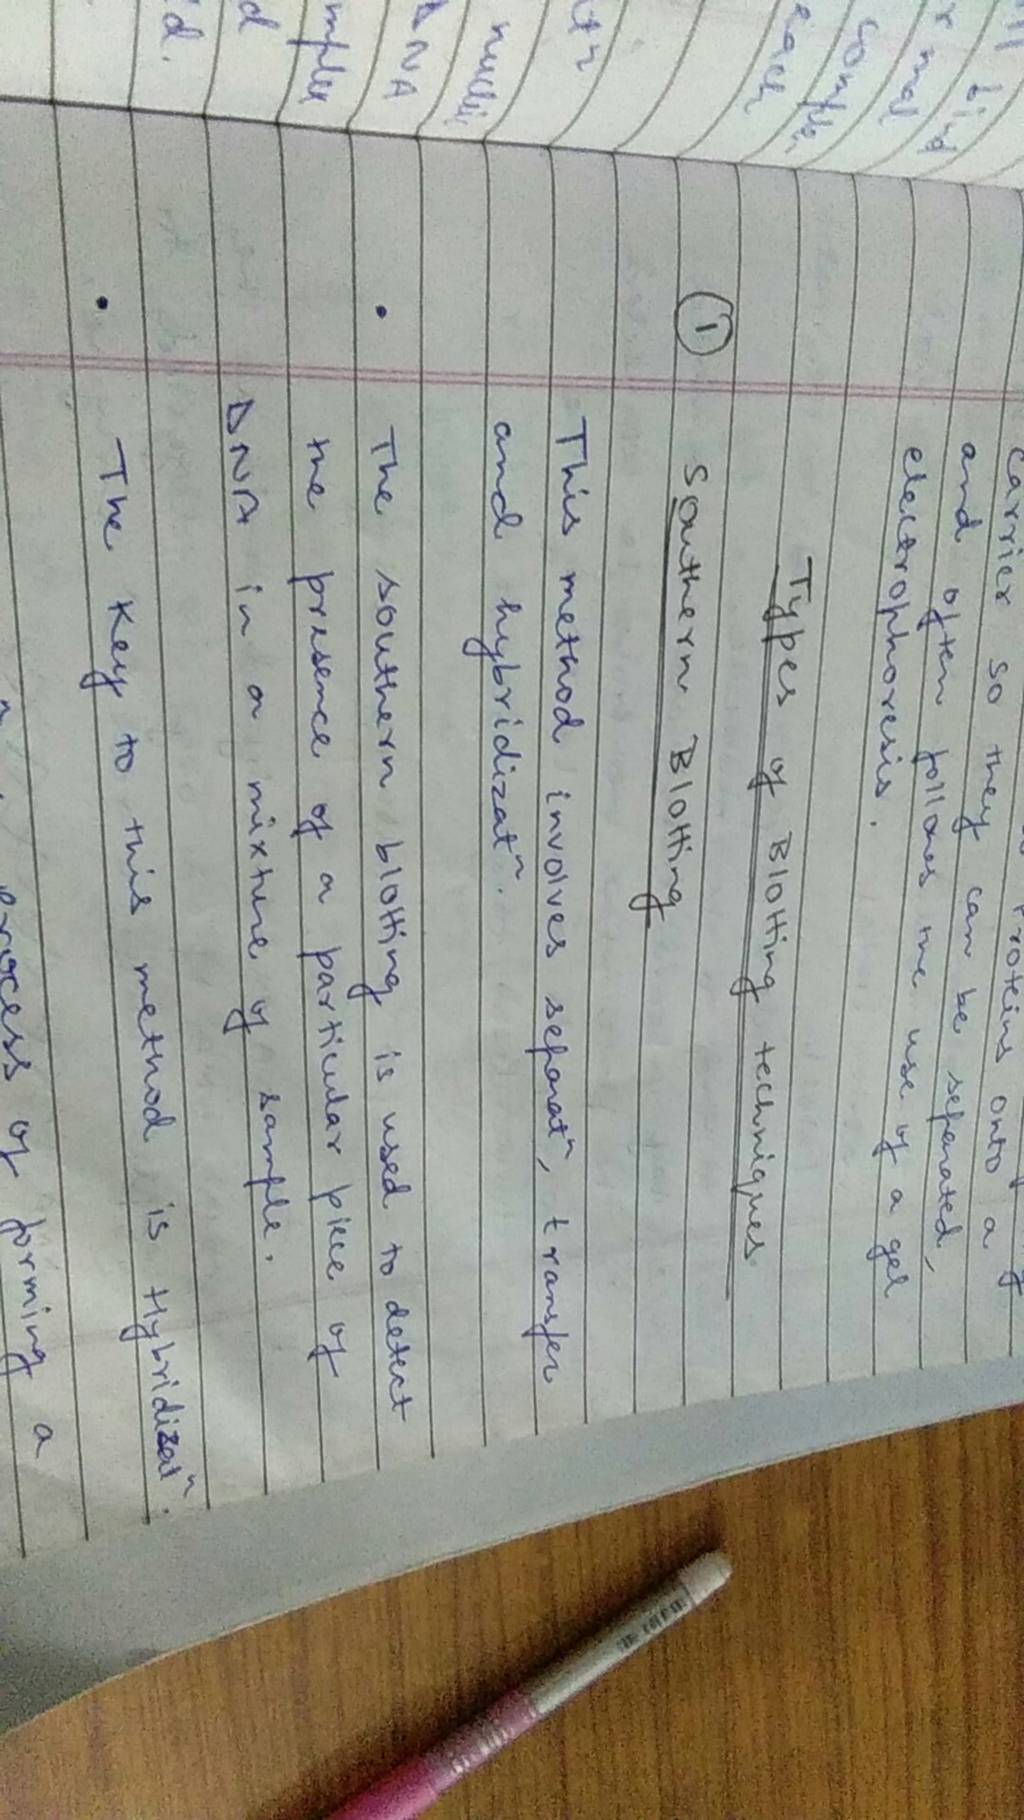 proteins onto a
carrier so they can be separated,
and often follows the use of a gel
electrophoresis.
Types of Blotting techniques
① Southern Blotting
This method involves separatⁿ, transfer
and hybridizatⁿ.
• The southern blotting is used to detect
the presence of a particular piece of
DNA in a mixture of sample.
• The Key to this method is Hybridizatⁿ.
process of forming a
bind
sample,
each
DNA
d
d.